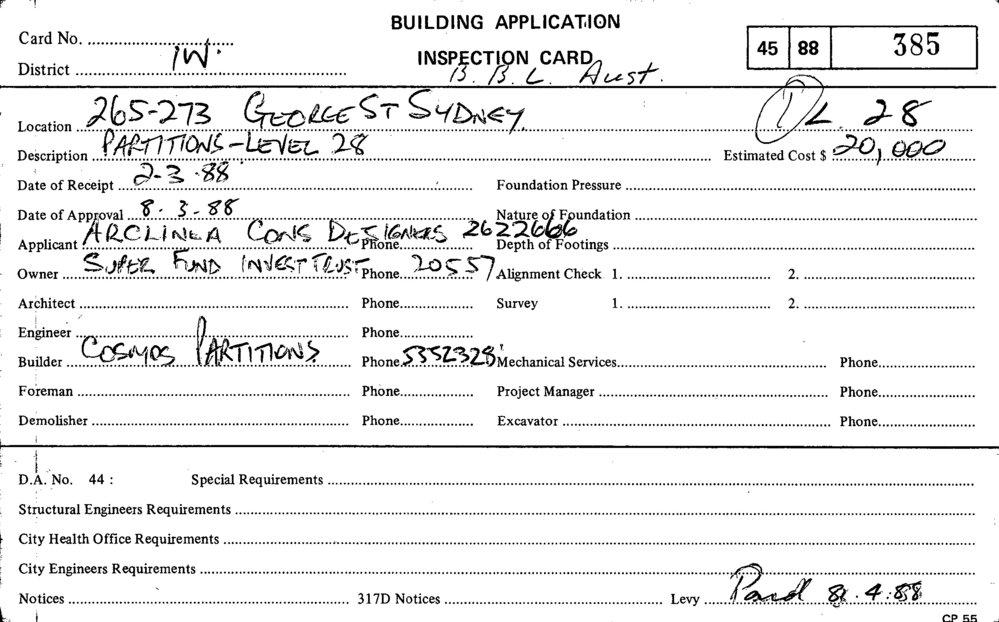 BUILDING APPLICATION
Card No.
INSPECTION CARD
45 88 385
District 1W.
B. B. L. Aust.
Location 265-273 GEORGE ST SYDNEY.
1 L 28
Description PARTITIONS - LEVEL 28
Estimated Cost $ 20,000
Date of Receipt 2-3-88
Foundation Pressure
Date of Approval 8.3-88
Nature of Foundation
Applicant ARCLINEA CONS DESIGNERS Phone 2622666
Depth of Footings
Owner SUPER FUND INVEST TRUST Phone 20557
Alignment Check 1. 2.
Architect Phone
Survey 1. 2.
Engineer Phone
Builder COSMOS PARTITIONS Phone 5352328
Mechanical Services Phone
Foreman Phone
Project Manager Phone
Demolisher Phone
Excavator Phone
D.A. No. 44 : Special Requirements
Structural Engineers Requirements
City Health Office Requirements
City Engineers Requirements
Notices 317D Notices Levy Paid 4.88
CP 55